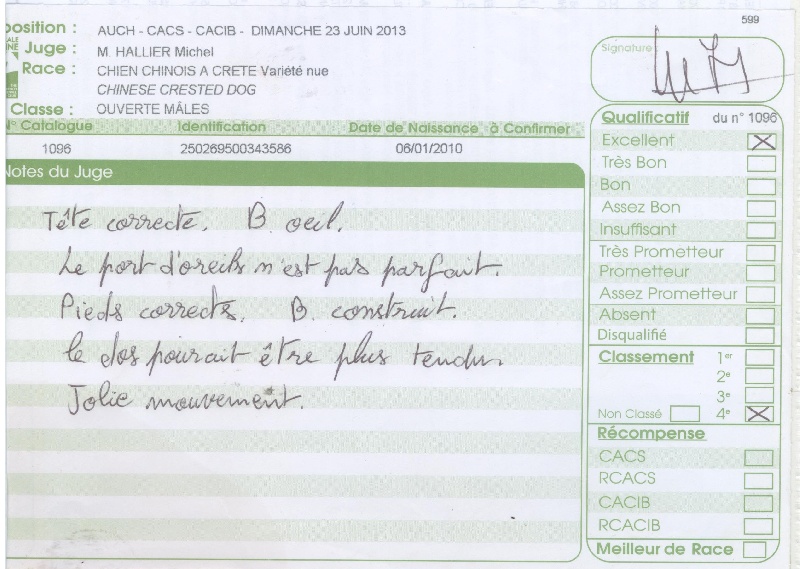 599
position : AUCH - CACS - CACIB - DIMANCHE 23 JUIN 2013
Juge : M. HALLIER Michel
Race : CHIEN CHINOIS A CRETE Variété nue
CHINESE CRESTED DOG
Classe : OUVERTE MÂLES
N° Catalogue Identification Date de Naissance à Confirmer
1096 250269500343586 06/01/2010
Notes du Juge
Tête correcte. B oeil.
Le port d'oreils n'est pas parfait.
Pieds corrects. B. construit.
le dos pourait être plus tendu.
Jolie mouvement.
Signature
Qualificatif du n° 1096
Excellent
Très Bon
Bon
Assez Bon
Insuffisant
Très Prometteur
Prometteur
Assez Prometteur
Absent
Disqualifié
Classement 1er
2e
3e
Non Classé 4e
Récompense
CACS
RCACS
CACIB
RCACIB
Meilleur de Race